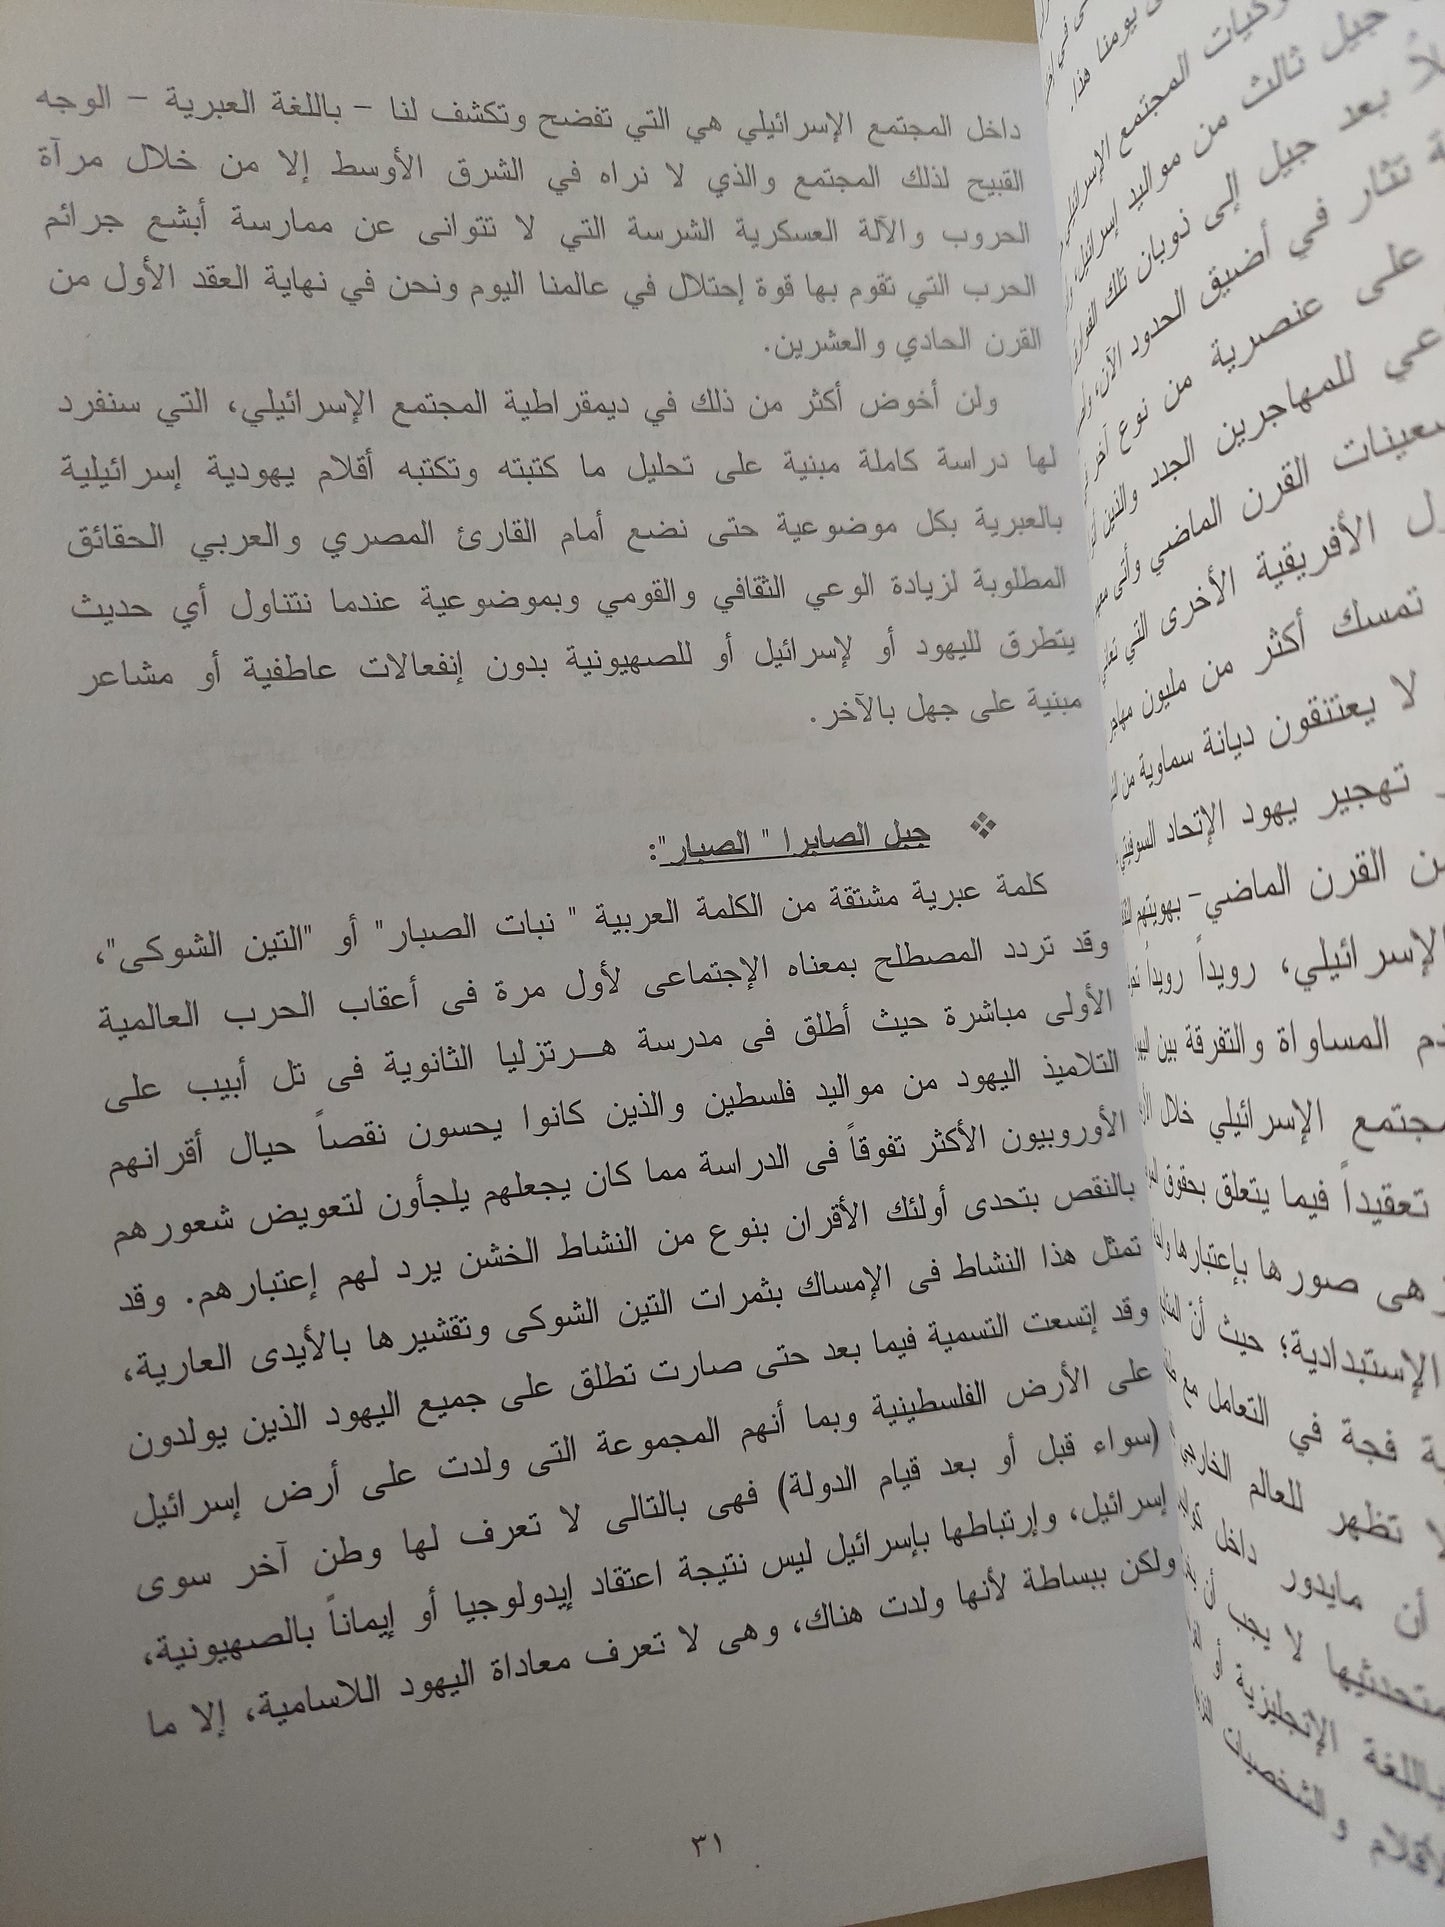 داخل المجتمع الإسرائيلي هي التي تفضح وتكشف لنا – باللغة العبرية – الوجه
القبيح لذلك المجتمع والذي لا نراه في الشرق الأوسط إلا من خلال مرآة
الحروب والآلة العسكرية الشرسة التي لا تتوانى عن ممارسة أبشع جرائم
الحرب التي تقوم بها قوة إحتلال في عالمنا اليوم ونحن في نهاية العقد الأول من
القرن الحادي والعشرين.
ولن أخوض أكثر من ذلك في ديمقراطية المجتمع الإسرائيلي، التي سنفرد
لها دراسة كاملة مبنية على تحليل ما كتبته وتكتبه أقلام يهودية إسرائيلية
بالعبرية بكل موضوعية حتى نضع أمام القارئ المصري والعربي الحقائق
المطلوبة لزيادة الوعي الثقافي والقومي وبموضوعية عندما نتناول أي حديث
يتطرق لليهود أو لإسرائيل أو للصهيونية بدون إنفعالات عاطفية أو مشاعر
مبنية على جهل بالآخر.
❖ جيل الصابرا " الصبار":
كلمة عبرية مشتقة من الكلمة العربية " نبات الصبار" أو "التين الشوكى"،
وقد تردد المصطلح بمعناه الإجتماعى لأول مرة فى أعقاب الحرب العالمية
الأولى مباشرة حيث أطلق فى مدرسة هـرتزليا الثانوية فى تل أبيب على
التلاميذ اليهود من مواليد فلسطين والذين كانوا يحسون نقصاً حيال أقرانهم
الأوروبيون الأكثر تفوقاً فى الدراسة مما كان يجعلهم يلجأون لتعويض شعورهم
بالنقص بتحدى أولئك الأقران بنوع من النشاط الخشن يرد لهم إعتبارهم. وقد
تمثل هذا النشاط فى الإمساك بثمرات التين الشوكى وتقشيرها بالأيدى العارية،
وقد إتسعت التسمية فيما بعد حتى صارت تطلق على جميع اليهود الذين يولدون
على الأرض الفلسطينية وبما أنهم المجموعة التى ولدت على أرض إسرائيل
(سواء قبل أو بعد قيام الدولة) فهى بالتالى لا تعرف لها وطن آخر سوى
إسرائيل، وإرتباطها بإسرائيل ليس نتيجة اعتقاد إيدولوجيا أو إيماناً بالصهيونية،
ولكن ببساطة لأنها ولدت هناك، وهى لا تعرف معاداة اليهود اللاسامية، إلا ما
٣١
يومنا هذا.
المجتمع
جيل ثالث من مواليد إسرائيل،
بعد جيل إلى ذوبان تلك
تثار في أضيق الحدود الآن،
على عنصرية من نوع آخر
للمهاجرين الجدد والذين
القرن الماضي وأتى
الأفريقية الأخرى التي
تمسك أكثر من مليون
لا يعتنقون ديانة سماوية من
تهجير يهود الإتحاد السوفيتي
القرن الماضي- بهويتهم
الإسرائيلي، رويداً رويداً
المساواة والتفرقة بين
الإسرائيلي خلال
تعقيداً فيما يتعلق بحقوق
هى صورها بإعتبارها
الإستبدادية؛ حيث أن
فجة في التعامل مع
لا تظهر للعالم
أن مايدور داخل
لا يجب أن
باللغة الإنجليزية
والشخصيات